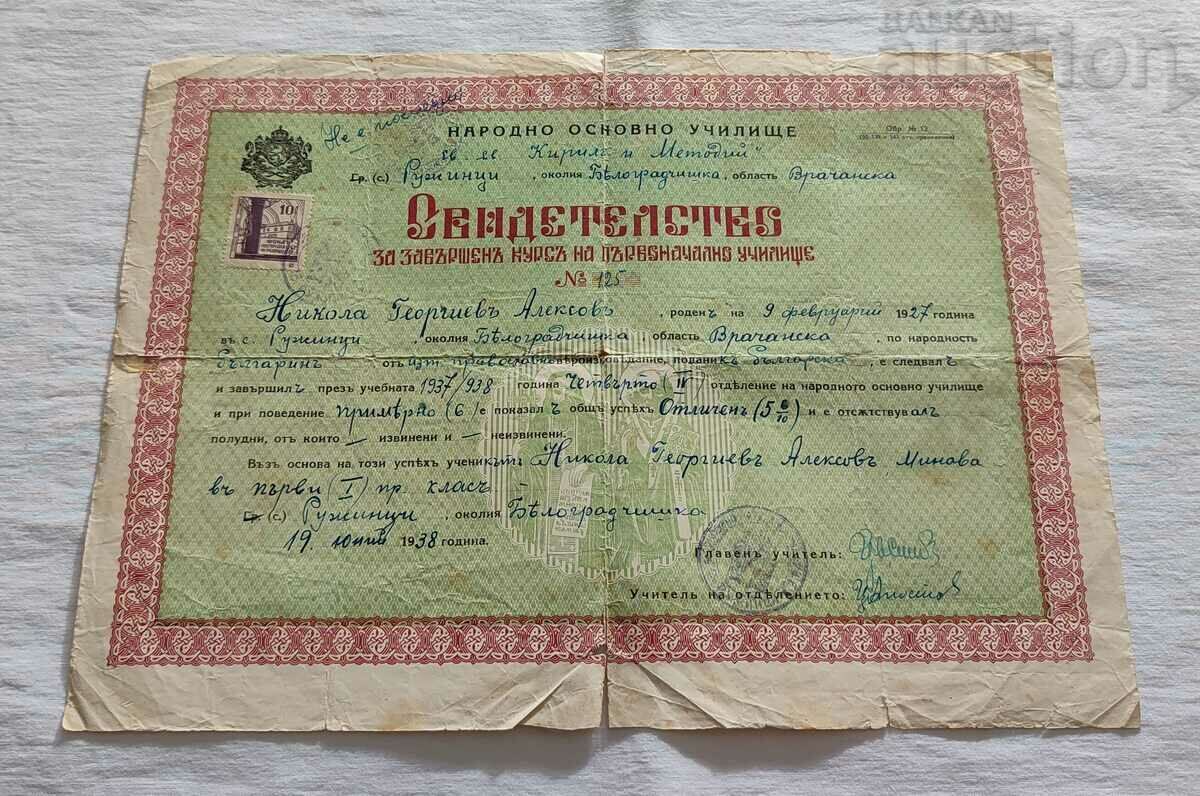 БАЛКАН
auction
Не е
НАРОДНО ОСНОВНО УЧИЛИЩЕ
Обр. № 12
св. св. Кирилъ и Методий"
Гр. (с.) Ружинци, околия Бѣлоградчишка, область Врачанска
10
СВИДЕТЕЛСТВО
ЗА ЗАВЪРШЕНЪ КУРСЪ НА ПЪРВОНАЧАЛНО УЧИЛИЩЕ
№ 125
Никола Георгиевъ Алексовъ, роденъ на 9 февруарий 1927 година
въ с. Ружинци, околия Бѣлоградчишка, область Врачанска, по народность
българинъ отъ изт. православно вѣроизповѣдание, поданикъ български, е следвалъ
и завършилъ презъ учебната 1937/938 година Четвърто (IV) отдѣление на народното основно училище
и при поведение примѣрно (6) е показалъ общъ успѣхъ Отличенъ (5 6/10) и е отсѫтствувалъ
полудни, отъ които — извинени и — неизвинени.
Възъ основа на този успѣхъ ученикътъ Никола Георгиевъ Алексовъ минава
въ първи (I) пр. класъ
Гр. (с.) Ружинци, околия Бѣлоградчишка
19. юний 1938 година.
Главенъ учитель:
Учитель на отдѣлението: